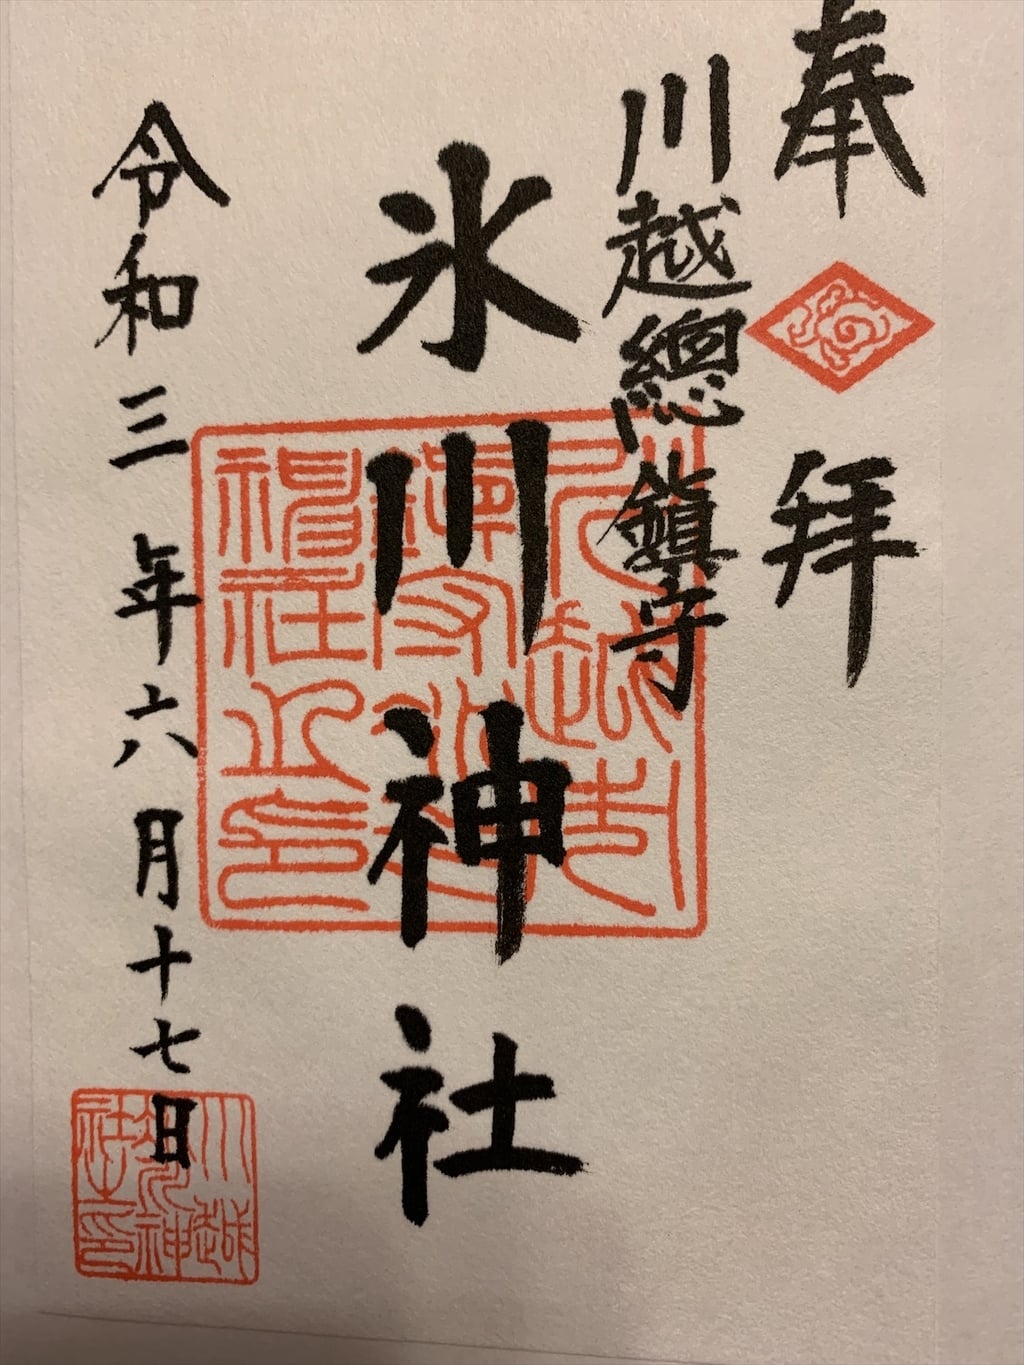 奉拝
川越總鎮守
氷川神社
令和三年六月十七日
川越市
鎮守氷川
神社之印
川越
氷川神
社之印